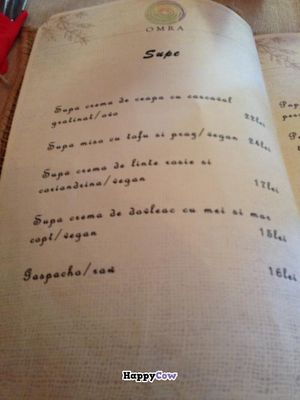 OMRA
Supe
Supa crema de ceapa cu cascaval
gratinat/ovo 22lei
Supa miso cu tofu si praz/vegan 24lei
Supa crema de linte rosie si
coriandrina/vegan 17lei
Supa crema de dovleac cu mei si mar
copt/vegan 15lei
Gaspacho/raw 16lei
Pap
HappyCow